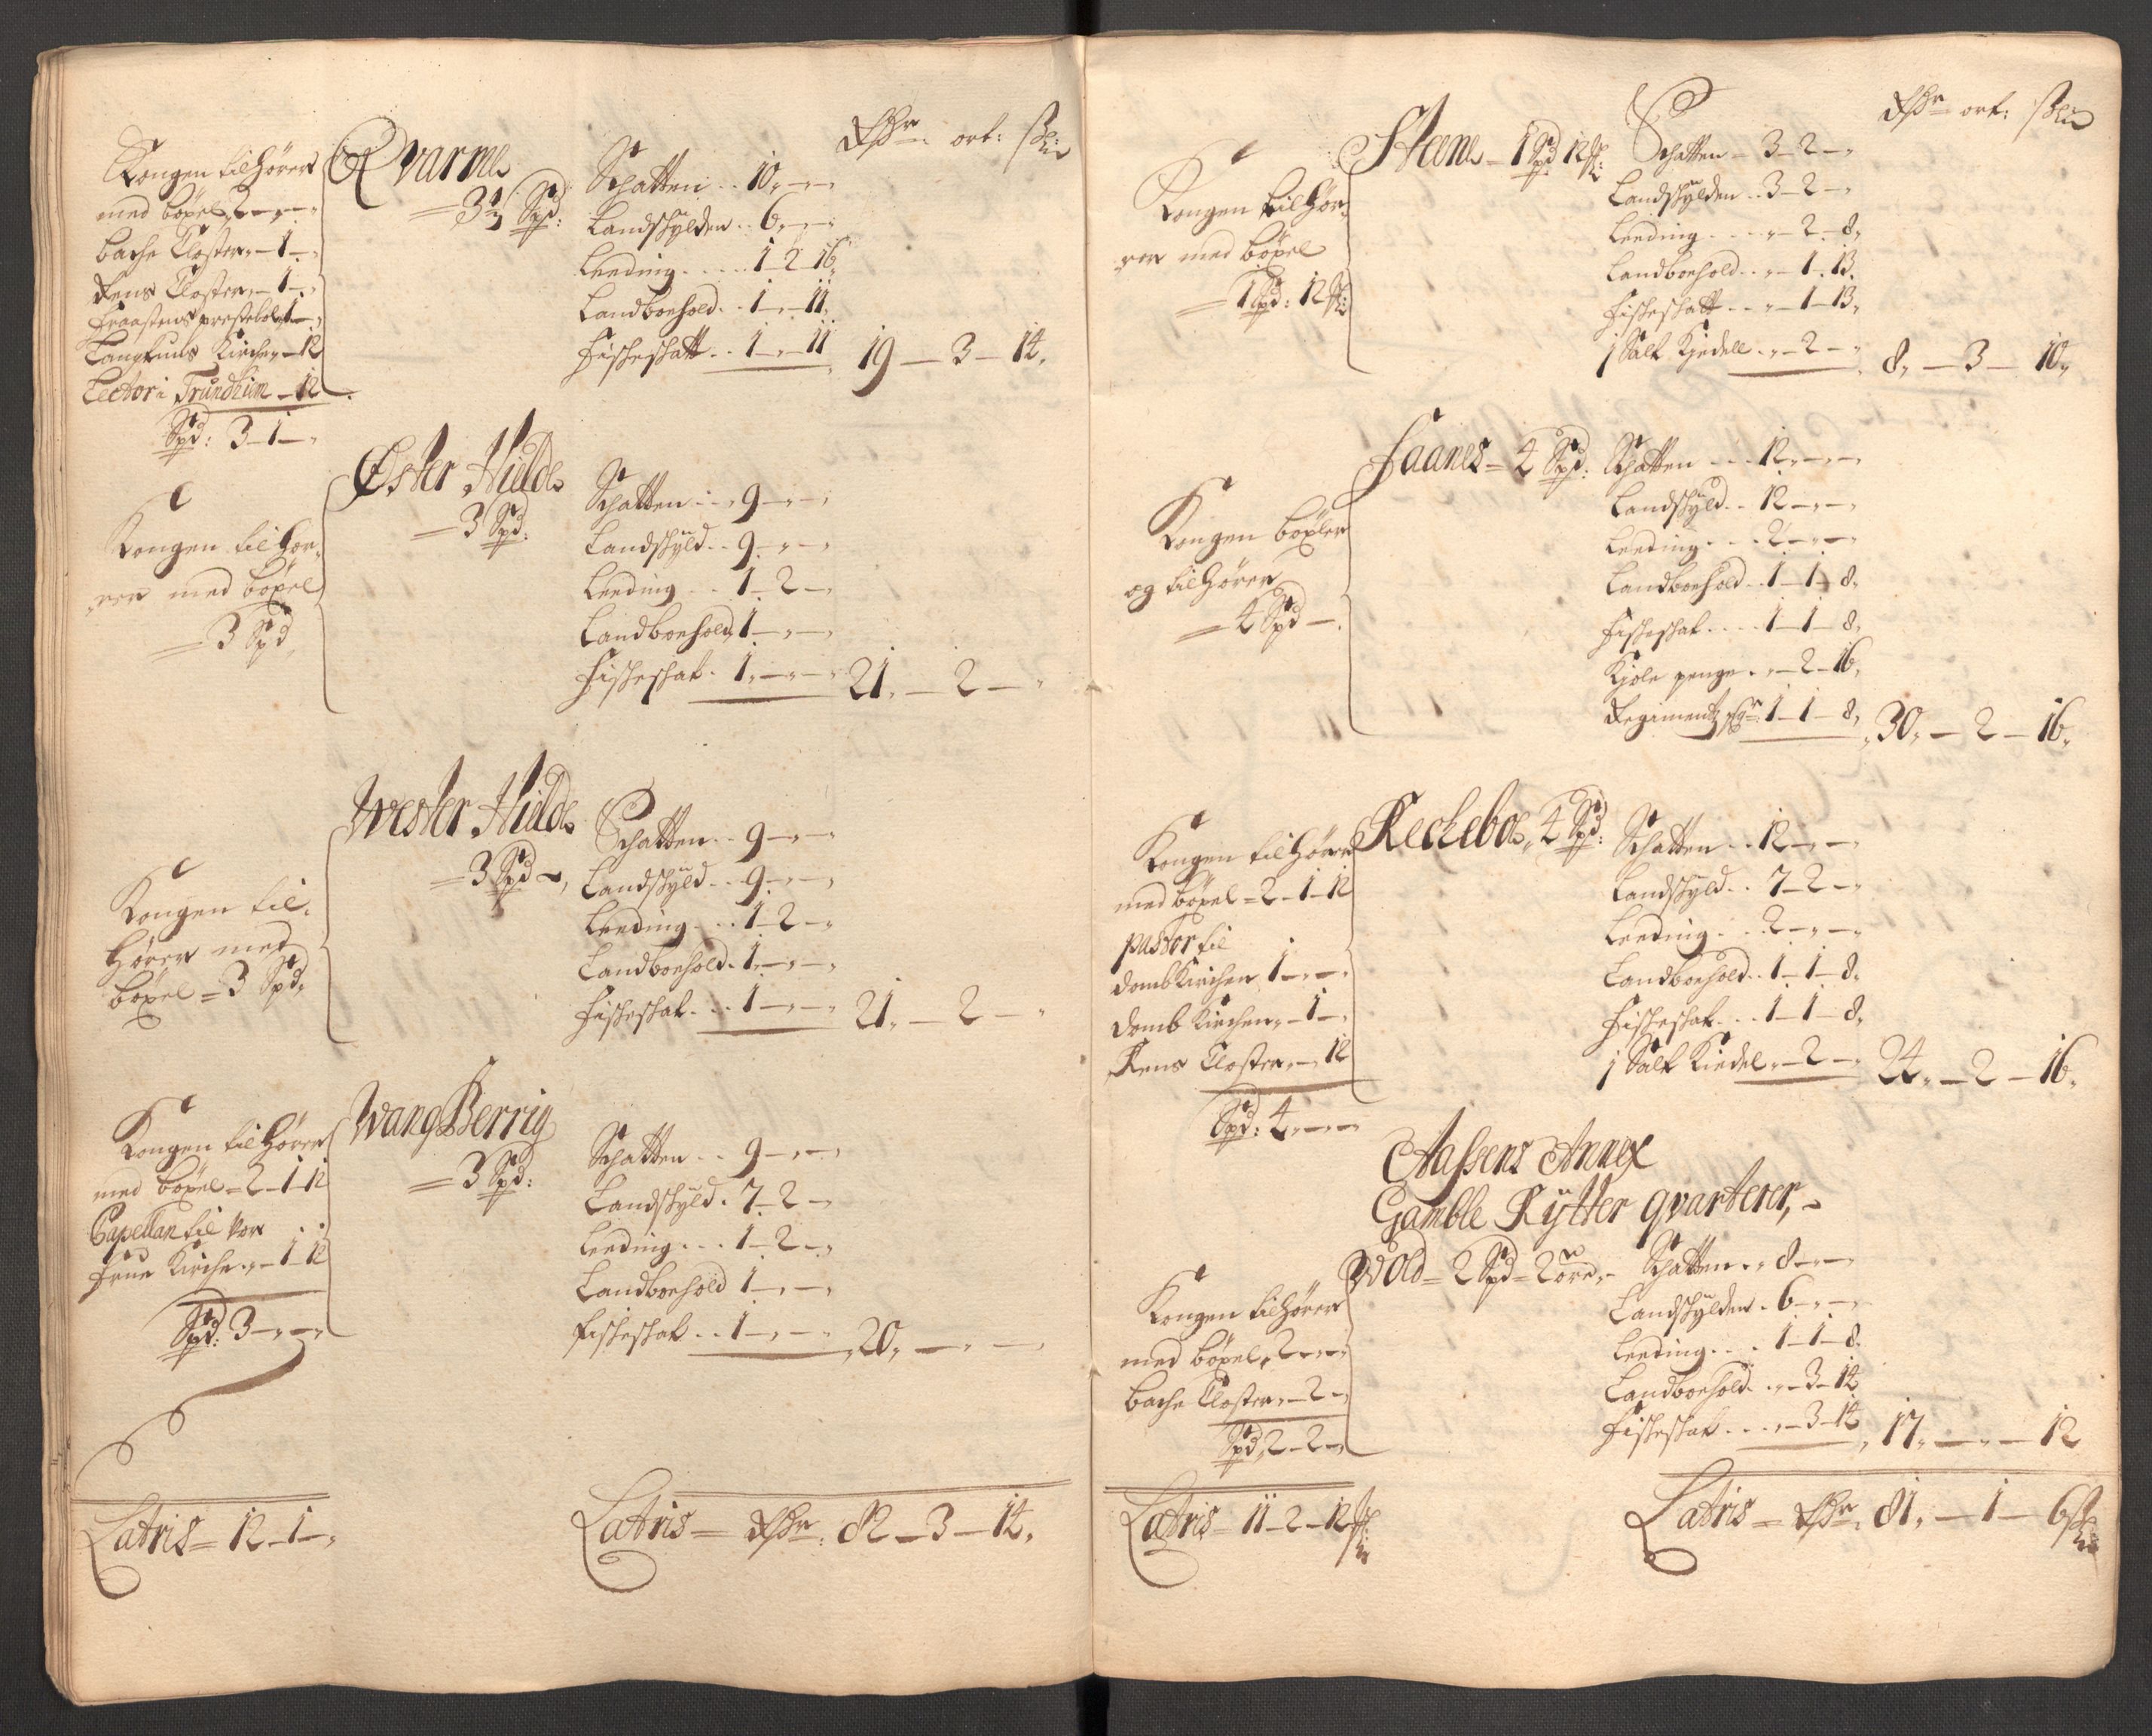 Rdr ort: ss
Kongen tilhører
med böxel 2 – „ – „
Bache Closter „ – 1 – „
Rens Closter „ – 1 – „
Fraastens prestebol „ 1 – „
Langlunds Kirche „ – 12
Lector i Trundhim – 12
Spd: 3 – 1 – „
Qvarme
= 3⅓ Spd:
Schatten . . 10 „ – „ –
Landschylden . . 6 „ – „
Leeding . . . . 1 – 2 – 16
Landboehold . . 1 – „ – 11
Fischeschatt . . 1 – „ – 11 19 – 3 – 14.
Kongen tilhør-
rer med böxel
= 3 Spd
Øster Hielde
= 3 Spd:
Schatten . . 9 – „ – „
Landschyld . . 9 – „ – „
Leeding . . 1 – 2 – „
Landboehold 1 – „ – „
Fischeschat . 1 „ – „ – 21. – 2 – „
Kongen til-
hører med
böxel = 3 Spd,
Wester Hielde
= 3 Spd – ,
Schatten . . 9 – „ – „
Landschyld . . 9 – „ – „
Leeding . . . 1 – 2 – „
Landboehold . 1 – „ – „
Fischeschat . . . 1 – „ – „ 21. – 2 – „
Kongen tilhører
med böxel = 2 – 1 – 12
Capellan til vor
frue Kirche „ – 1 – 12
Spd: 3 – „ – „
WangBerrig
= 3 Spd:
Schatten . . 9 – „ – „
Landschyld . 7 – 2 – „
Leeding . . . 1 – 2 – „
Landboehold 1 – „ – „
Fischeschat . . 1 – „ – „ 20. – „ – „
Latris = 12 – 1 – „
Latris = Rdr: 82 – 3 – 14.
Rdr ort: ss
Kongen tilhør-
rer med böxel
= 1 Spd: 12
Steene – 1 Spd 12
Schatten – 3 – 2 – „
Landschylden . . 3 – 2 – „
Leeding . . . . „ – 2 – 8,
Landboehold . . „ – 1 – 13.
Fischeschatt . . . „ – 1 – 13,
1 Salt Kjedell . „ – 2 – „ 8, – 3 – 10,
Kongen böxler
og tilhører
= 4 Spd – .
Faanes = 4 Spd:
Schatten . . . 12 „ – „ – „
Landschyld . . 12 – „ – „
Leeding . . . 2 – „ – „
Landboehold . . 1 – 1 – 8,
Fischeschat . . . . 1 – 1 – 8,
Kjole penge . „ – 2 – 16,
Regimentz 1 – 1 – 8, 30, – 2 – 16,
Kongen tilhører
med böxel = 2 – 1 – 12
Pastor til
Domb Kirchen 1 – „ – „
Domb Kirchen „ – 1 – „
Rens Closter „ – „ 12
Spd: 4 „ – „ –
Reckeboe, 4 Spd:
Schatten . . 12 – „ – „
Landschyld . . 7 – 2 – „
Leeding . . 2 – „ – „
Landboehold . . 1 – 1 – 8,
Fischeschat . . . 1 – 1 – 8,
1 Salt Kiedel „ – 2 – „ 24, – 2 – 16,
Aassens Annex
Gamble Rytter qvarterer, –
Kongen tilhører
med böxel, 2 – „ – „
Bache Closter „ – 2 – „
Spd, 2 – 2 – „
Wold = 2 Spd = 2 ore, –
Schatten . . 8 – „ – „
Landschylden . 6 – „ – „
Leeding . . . 1 – 1 – 8.
Landboehold . „ – 3 – 14
Fischeschat . . . „ – 3 – 14 17. – „ – 12
Latris = 11 – 2 – 12
Latris = Rdr. 81. – 1 – 6